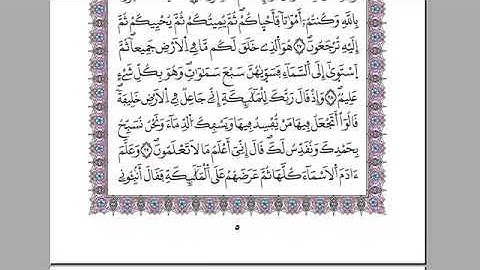 بِاللَّهِ وَكُنتُمْ أَمْوَٰتًا فَأَحْيَٰكُمْ ثُمَّ يُمِيتُكُمْ ثُمَّ يُحْيِيكُمْ ثُمَّ
إِلَيْهِ تُرْجَعُونَ هُوَ الَّذِي خَلَقَ لَكُم مَّا فِي الْأَرْضِ جَمِيعًا ثُمَّ
اَسْتَوَىٰ إِلَى السَّمَآءِ فَسَوَّىٰهُنَّ سَبْعَ سَمَٰوَٰتٍ وَهُوَ بِكُلِّ شَيْءٍ
عَلِيمٌ وَإِذْ قَالَ رَبُّكَ لِلْمَلَٰٓئِكَةِ إِنِّي جَاعِلٌ فِي الْأَرْضِ خَلِيفَةً
قَالُوٓا أَتَجْعَلُ فِيهَا مَن يُفْسِدُ فِيهَا وَيَسْفِكُ الدِّمَآءَ وَنَحْنُ نُسَبِّحُ
بِحَمْدِكَ وَنُقَدِّسُ لَكَ قَالَ إِنِّيَ أَعْلَمُ مَا لَا تَعْلَمُونَ وَعَلَّمَ
ءَادَمَ الْأَسْمَآءَ كُلَّهَا ثُمَّ عَرَضَهُمْ عَلَى الْمَلَٰٓئِكَةِ فَقَالَ أَنۢبِـُٔونِي
٥